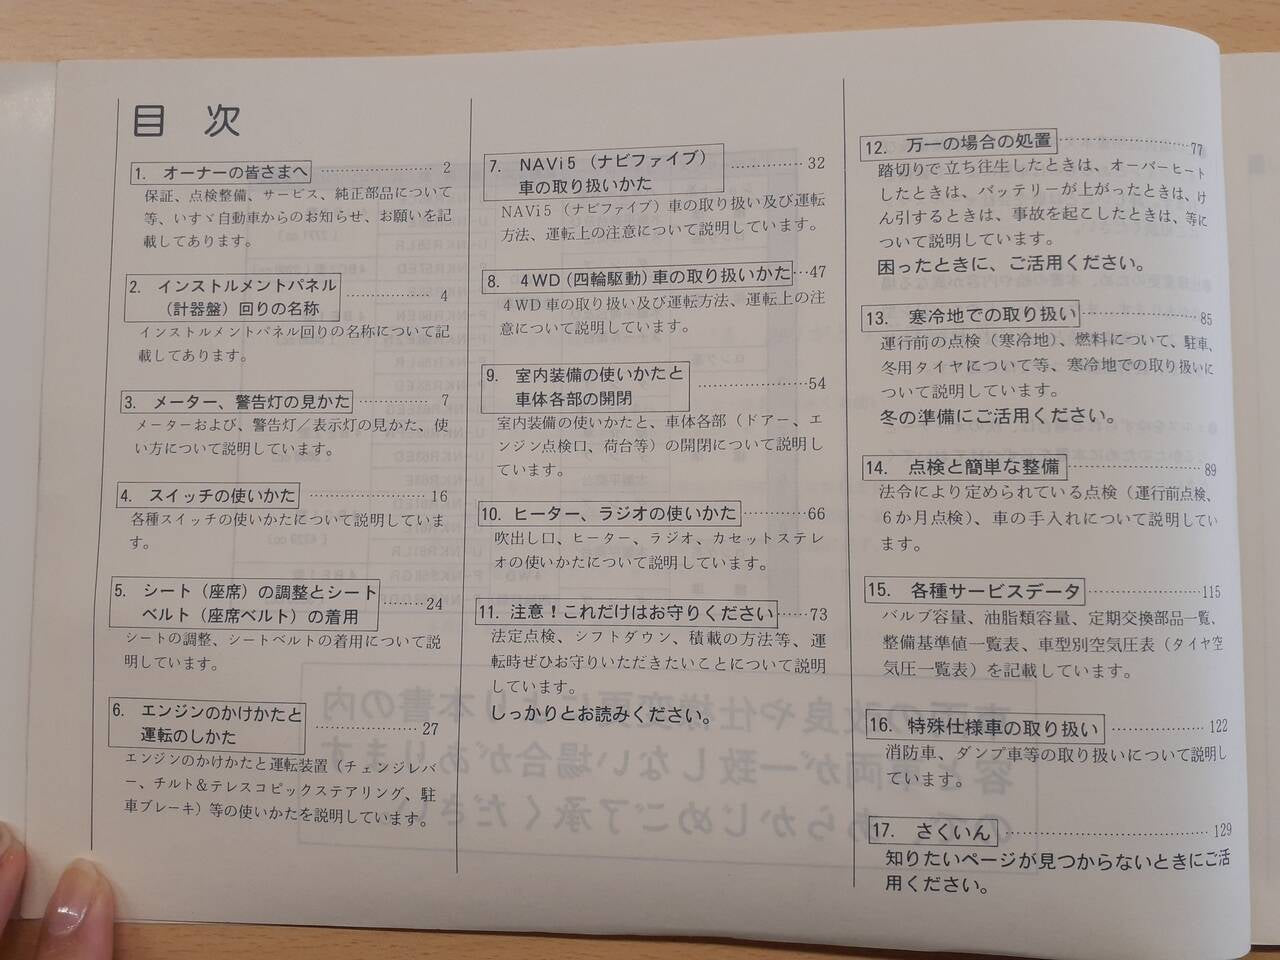 目 次
1. オーナーの皆さまへ ……………… 2
保証、点検整備、サービス、純正部品について
等、いすゞ自動車からのお知らせ、お願いを記
載してあります。
2. インストルメントパネル
(計器盤)回りの名称 ……………… 4
インストルメントパネル回りの名称について記
載してあります。
3. メーター、警告灯の見かた ………… 7
メーターおよび、警告灯/表示灯の見かた、使
い方について説明しています。
4. スイッチの使いかた ……………… 16
各種スイッチの使いかたについて説明していま
す。
5. シート(座席)の調整とシート
ベルト(座席ベルト)の着用 ……… 24
シートの調整、シートベルトの着用について説
明しています。
6. エンジンのかけかたと
運転のしかた ……………… 27
エンジンのかけかたと運転装置(チェンジレバ
ー、チルト&テレスコピックステアリング、駐
車ブレーキ)等の使いかたを説明しています。
7. NAVi5(ナビファイブ)
車の取り扱いかた ……………… 32
NAVi5(ナビファイブ)車の取り扱い及び運転
方法、運転上の注意について説明しています。
8. 4WD(四輪駆動)車の取り扱いかた … 47
4WD車の取り扱い及び運転方法、運転上の注
意について説明しています。
9. 室内装備の使いかたと
車体各部の開閉 ……………… 54
室内装備の使いかたと、車体各部(ドアー、エ
ンジン点検口、荷台等)の開閉について説明し
ています。
10. ヒーター、ラジオの使いかた ……… 66
吹出し口、ヒーター、ラジオ、カセットステレ
オの使いかたについて説明しています。
11. 注意!これだけはお守りください …… 73
法定点検、シフトダウン、積載の方法等、運
転時ぜひお守りいただきたいことについて説明
しています。
しっかりとお読みください。
12. 万一の場合の処置 ……………… 77
踏切りで立ち往生したときは、オーバーヒート
したときは、バッテリーが上がったときは、け
ん引するときは、事故を起こしたときは、等に
ついて説明しています。
困ったときに、ご活用ください。
13. 寒冷地での取り扱い ……………… 85
運行前の点検(寒冷地)、燃料について、駐車、
冬用タイヤについて等、寒冷地での取り扱いに
ついて説明しています。
冬の準備にご活用ください。
14. 点検と簡単な整備 ……………… 89
法令により定められている点検(運行前点検、
6か月点検)、車の手入れについて説明してい
ます。
15. 各種サービスデータ ……………… 115
バルブ容量、油脂類容量、定期交換部品一覧、
整備基準値一覧表、車型別空気圧表(タイヤ空
気圧一覧表)を記載しています。
16. 特殊仕様車の取り扱い ……………… 122
消防車、ダンプ車等の取り扱いについて説明し
ています。
17. さくいん ……………… 129
知りたいページが見つからないときにご活
用ください。